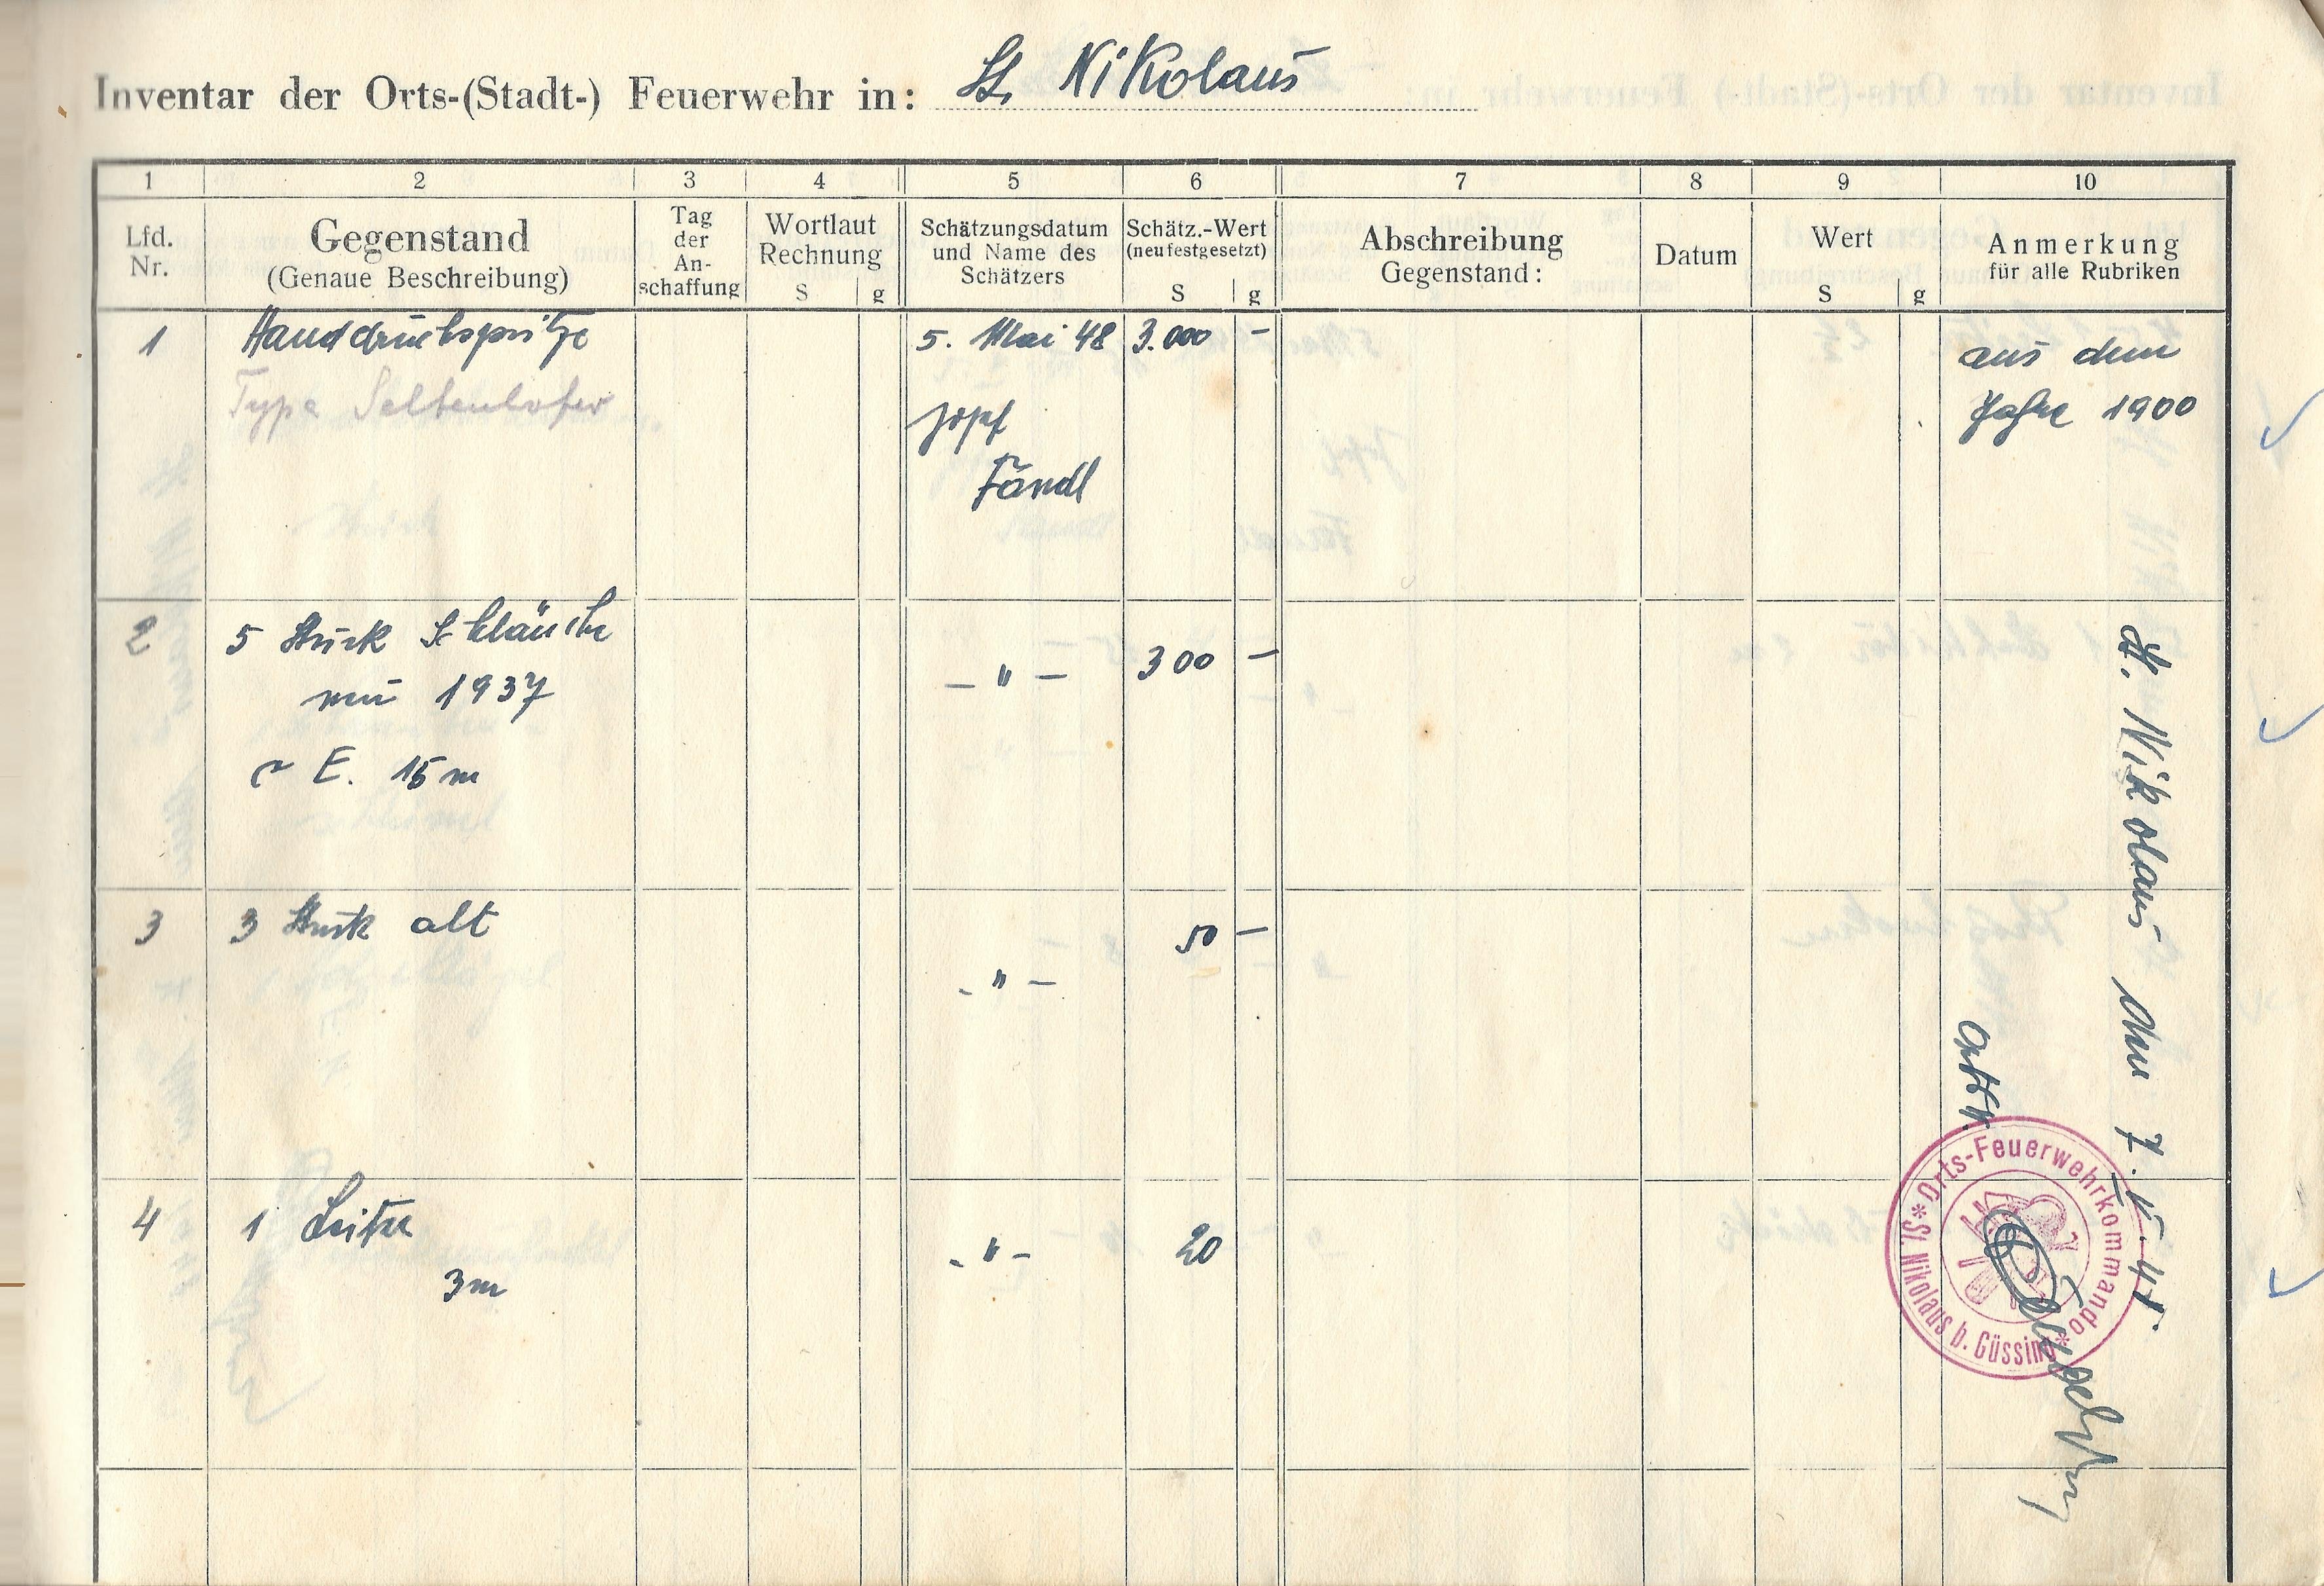 Inventar der Orts-(Stadt-) Feuerwehr in: St. Nikolaus
1 2 3 4 5 6 7 8 9 10
Lfd. Nr.
Gegenstand
(Genaue Beschreibung)
Tag
der
An-
schaffung
Wortlaut
Rechnung
S g
Schätzungsdatum
und Name des
Schätzers
Schätz.-Wert
(neufestgesetzt)
S g
Abschreibung
Gegenstand:
Datum
Wert
S g
Anmerkung
für alle Rubriken
1 Handdruckspritze 5. Mai 48 3.000 –
Type Seltenhofer
Fandl
aus dem
Jahre 1900
2 5 Stück Schläuche – " – 300 –
neu 1937
E. 15 m
3 3 Stück alt – " – 50 –
4 1 Leiter – " – 20
3m
St. Nikolaus am 7. 5. 48.
Orts-Feuerwehrkommando
St. Nikolaus b. Güssing